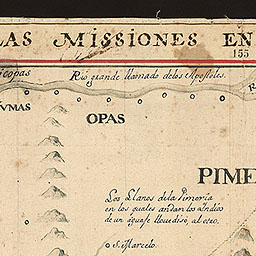 LAS MISSIONES EN
155
icopas
Rio grande llamado delos Apostoles.
R
YUMAS
OPAS
PIME
Los Llanos dela Pimeria
en los quales andan los indios
de un aguaje
al otro.
S. Marcelo.